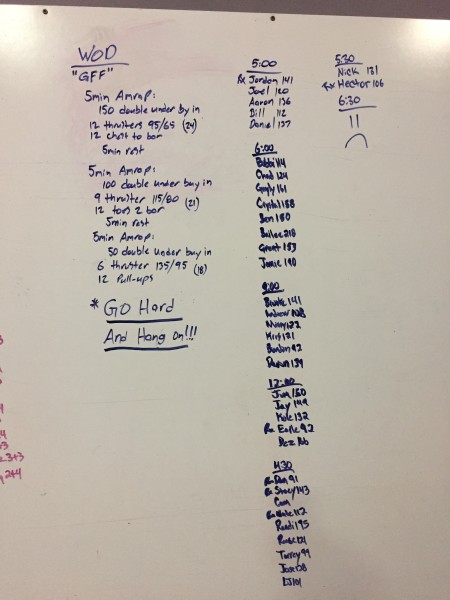 WOD
"GFF"
5min Amrap:
150 double under buy in
12 thrusters 95/65 (24)
12 chest to bar
5min rest
5min Amrap:
100 double under buy in
9 thruster 115/80 (21)
12 toes 2 bar
5min rest
5min Amrap:
50 double under buy in
6 thruster 135/95 (18)
12 Pull-ups
* Go Hard
And Hang on!!!
5:00
Rx Jordan 141
Joel 120
Aaron 136
Bill 112
Daniel 137
6:00
Bobbi 114
Chad 124
161
Crystal 158
Ben 150
218
Grant 153
Jamie 190
9:00
141
Andrew
Missy 122
Kris 121
92
139
12:00
Jim 150
Jay 149
132
Rx Earle 92
Dez
4:30
Rx Dan 91
Rx Stacy 143
Cam
Rx 112
Randi 195
121
Torrey 99
EJ 101
5:30
Nick 131
Rx Hector 106
6:30
3+3
2+4